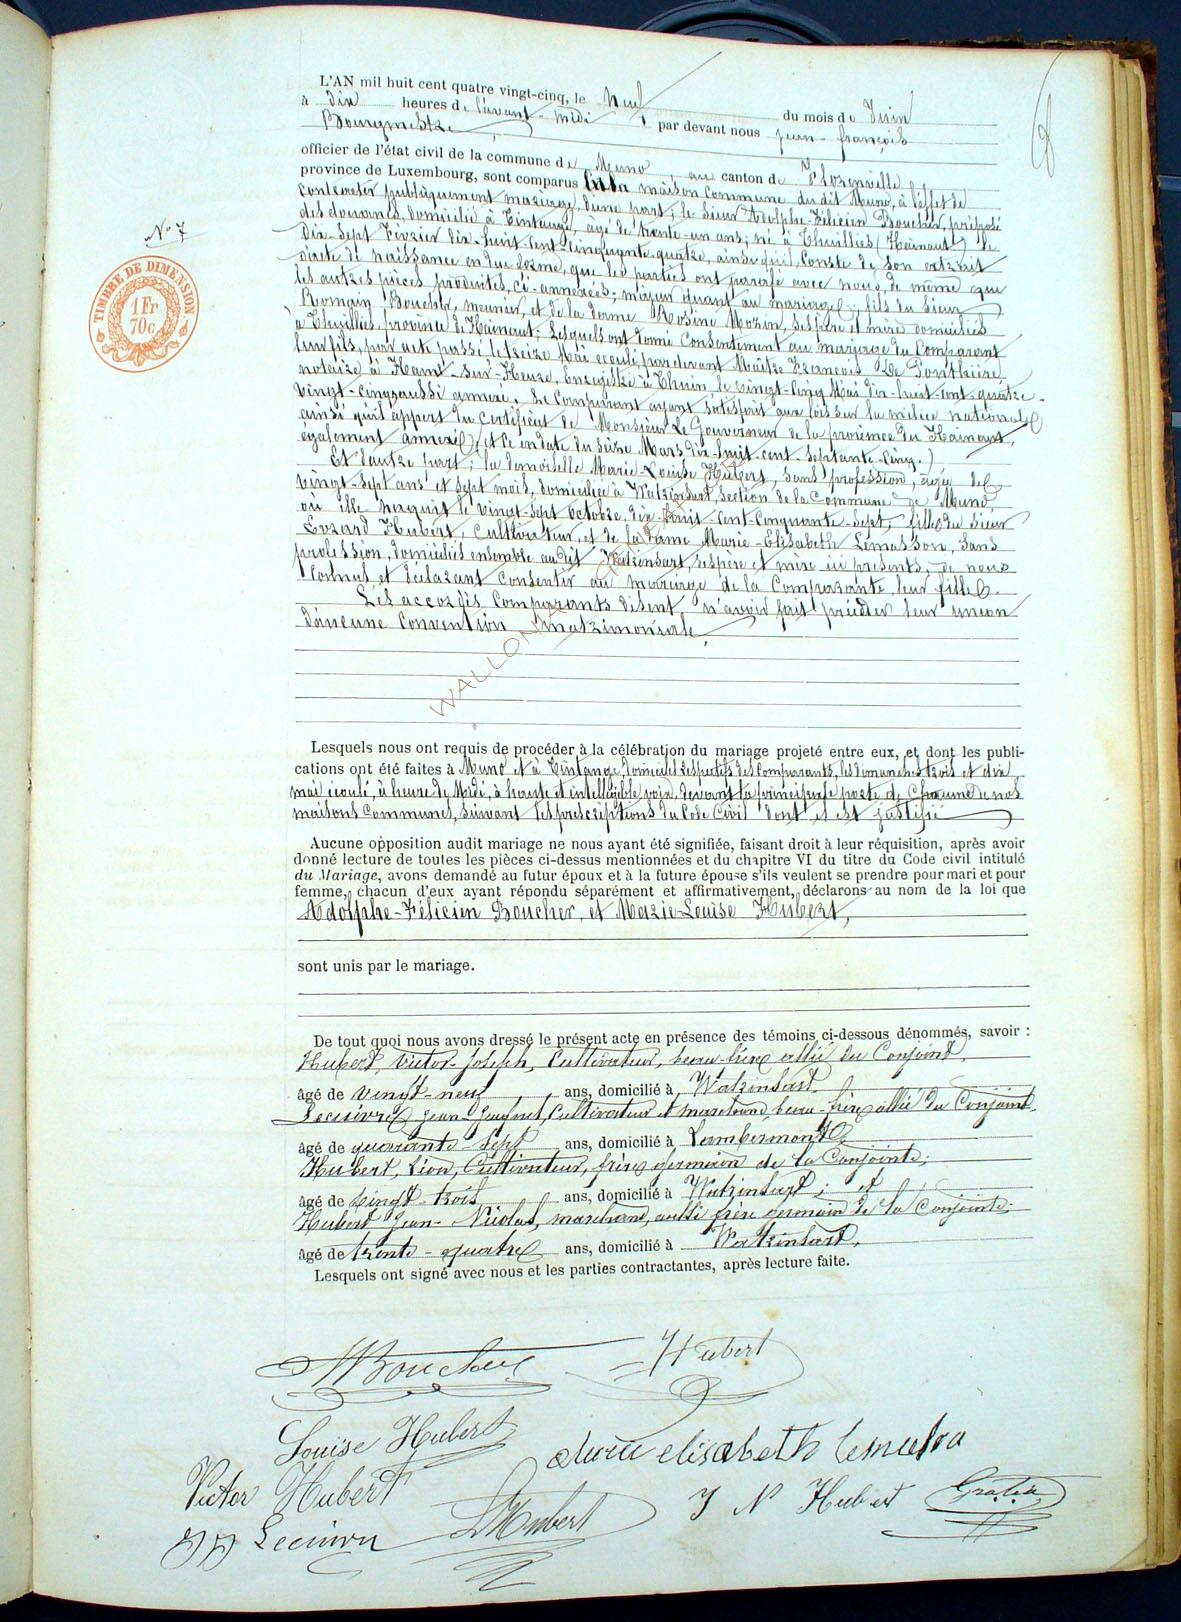 L'AN mil huit cent quatre vingt-cinq, le neuf du mois de Juin
à dix heures de l'avant-midi par devant nous jean-françois
Bourgmestre
officier de l'état civil de la commune de Muno, au canton de Florenville
province de Luxembourg, sont comparus en la maison Commune du dit Muno, à l'effet de
contracter publiquement mariage, d'une part; le sieur Adolphe-Félicien Boucher, préposé
N° 7
des douanes, domicilié à Tintange, âgé de trente-un ans; né à Thuillies (Hainaut) le
dix-sept Février dix-huit cent cinquante-quatre, ainsi qu'il conste de son extrait
d'acte de naissance en due forme, que les parties ont parafé avec nous, de même que
TIMBRE DE DIMENSION
1 Fr
70c
les autres pièces produites, ci-annexées; majeur quant au mariage, fils du sieur
Romain Boucher, meunier, et de la dame Rosine Morin, ses père et mère domiciliés
à Thuillies, province de Hainaut; Lesquels ont donné Consentement au mariage du Comparant
leur fils, par acte passé le treize Mai écoulé, par devant Maître François De Ponthière,
notaire à Ham-sur-Heure, Enregistré à Thuin, le vingt-cinq Mai dix-huit-cent-quatre-
vingt-cinq aussi annexé. Le Comparant ayant satisfait aux lois sur la milice nationale
ainsi qu'il appert du certificat de Monsieur Le Gouverneur de la province du Hainaut,
également annexé, (et ce en date du seize Mars dix-huit-cent septante-cinq.)
Et d'autre part; la demoiselle Marie-Louise Hubert, sans profession, âgée de
vingt-sept ans et sept mois, domiciliée à Watrinsart, section de la Commune de Muno
où elle naquit le vingt-sept Octobre dix-huit-cent-cinquante-sept, fille du sieur
Evrard Hubert, Cultivateur, et de la dame Marie-Elisabeth Lemasson, Sans
profession, domiciliés ensemble au dit Watrinsart, ses père et mère ici présents, de nous
Connus, et déclarant Consentir au mariage de la Comparante, leur fille.
Les accordés Comparants disent n'avoir fait précéder leur union
d'aucune Convention matrimoniale,
WALLONIA
Lesquels nous ont requis de procéder à la célébration du mariage projeté entre eux, et dont les publi-
cations ont été faites à Muno et à Tintange, domiciles respectifs des Comparants, les dimanches trois et dix
mai écoulé, à heure de Midi, à haute et intelligible voix, devant la principale porte de Chacune de nos
maisons Communes, suivant les prescriptions du Code Civil dont il est justifié
Aucune opposition audit mariage ne nous ayant été signifiée, faisant droit à leur réquisition, après avoir
donné lecture de toutes les pièces ci-dessus mentionnées et du chapitre VI du titre du Code civil intitulé
du Mariage, avons demandé au futur époux et à la future épouse s'ils veulent se prendre pour mari et pour
femme, chacun d'eux ayant répondu séparément et affirmativement, déclarons au nom de la loi que
Adolphe-Félicien Boucher, et Marie-Louise Hubert,
sont unis par le mariage.
De tout quoi nous avons dressé le présent acte en présence des témoins ci-dessous dénommés, savoir :
Hubert, Victor-Joseph, Cultivateur, beau-frère allié du Conjoint,
âgé de vingt-neuf ans, domicilié à Watrinsart
Lecuivre Jean-Joseph, Cultivateur et marchand, beau-frère allié du Conjoint
âgé de quarante-sept ans, domicilié à Lambermont
Hubert, Léon, Cultivateur, frère germain de la Conjointe;
âgé de vingt-trois ans, domicilié à Watrinsart; et
Hubert Jean-Nicolas, marchand, aussi frère germain de la Conjointe;
âgé de trente-quatre ans, domicilié à Watrinsart,
Lesquels ont signé avec nous et les parties contractantes, après lecture faite.
ABoucher Hubert
Louise Hubert
elisabeth
Victor Hubert
J N Hubert
JJ Lecuivre LHubert